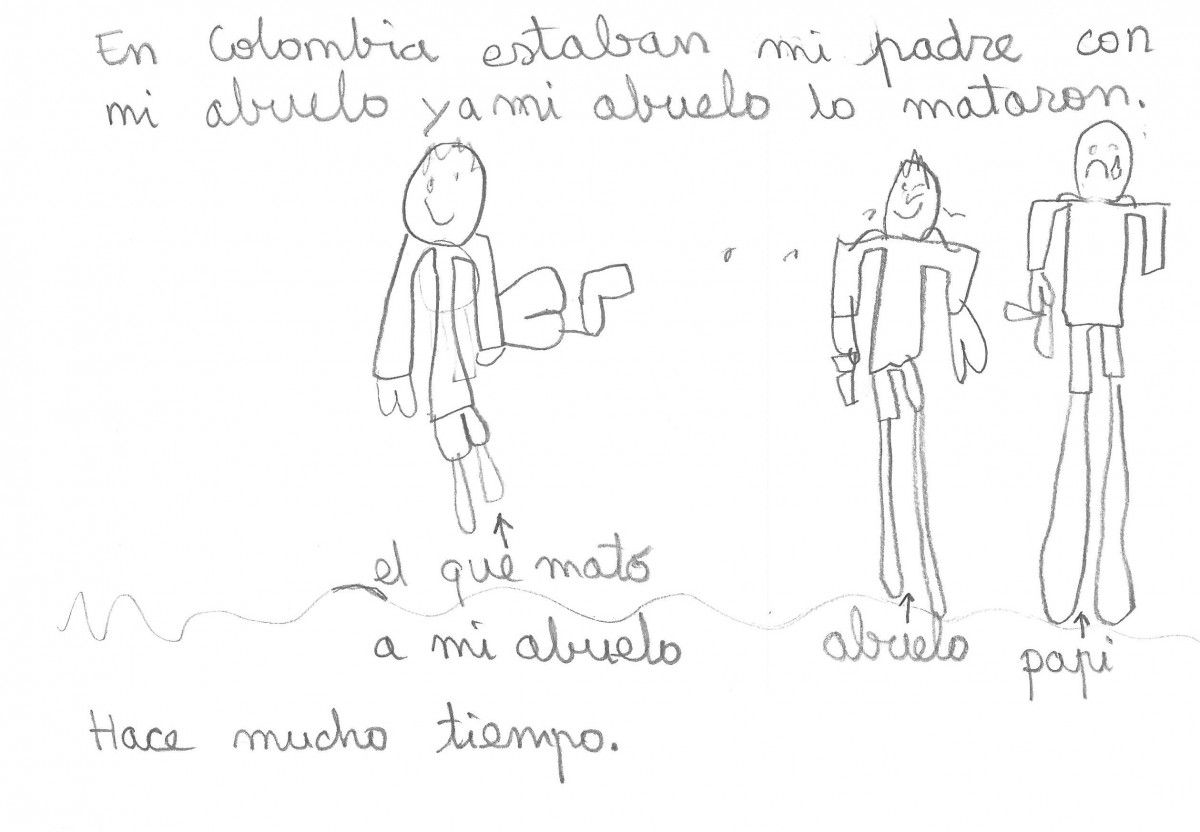 En Colombia estaban mi padre con
mi abuelo y a mi abuelo lo mataron.
el que mató
a mi abuelo
abuelo
papi
Hace mucho tiempo.